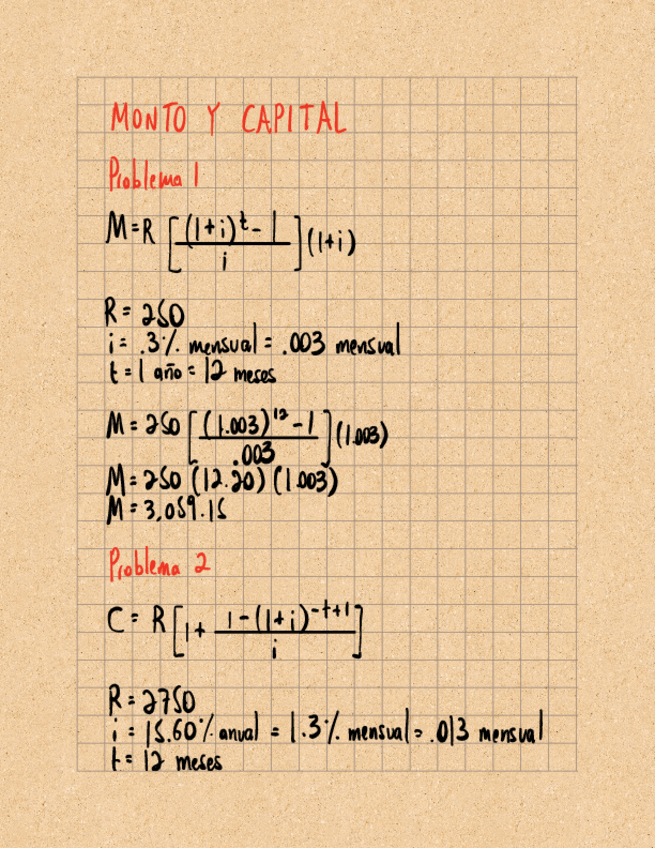 MONTO Y CAPITAL
Problema 1
M=R [((1+i)^t - 1)/i](1+i)
R= 250
i= .3% mensual = .003 mensual
t= 1 año = 12 meses
M= 250 [((1.003)^12 - 1)/.003](1.003)
M= 250 (12.20)(1.003)
M= 3,059.15
Problema 2
C= R[1+ (1-(1+i)^-t+1)/i]
R= 2750
i= 15.60% anual = 1.3% mensual = .013 mensual
t= 12 meses